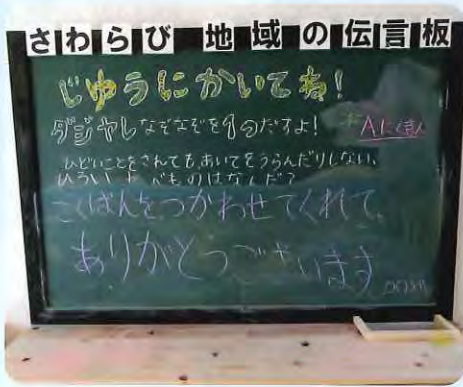 さわらび 地域の伝言板
じゆうにかいてね!
ダジャレなぞなぞを1つだすよ!
ひどいことをされても、あいてをうらんだりしない、
ひろい べものはなんだ?
こくばんをつかわせてくれて、
ありがとうございます